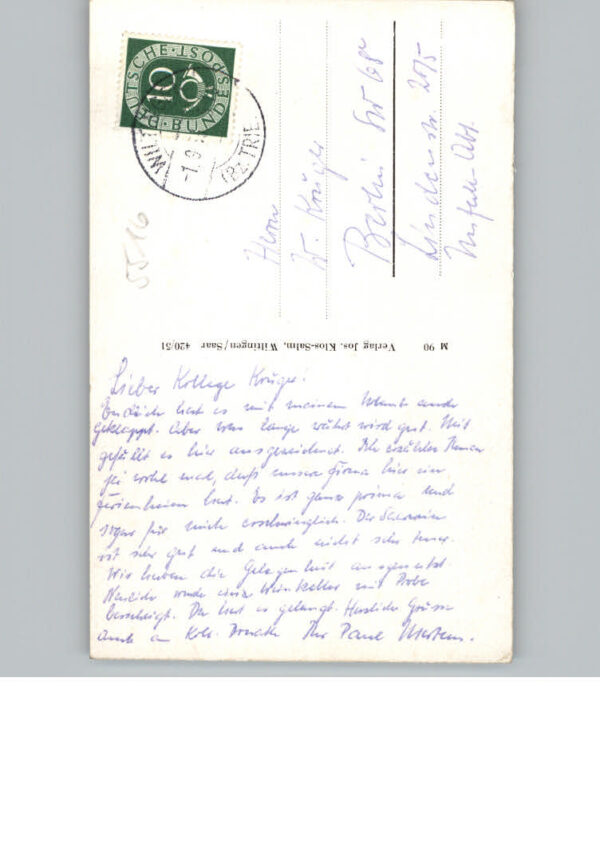 DEUTSCHE BUNDESPOST
10
WILT
-1.9.
(BZ. TRIE
5516
Herrn
W. Krüger
Berlin SW 68
Lindenstr. 20/5
Unfall-Abt.
M 90 Verlag Jos. Klos-Salm, Wiltingen/Saar 420/51
Lieber Kollege Krüger!
Endlich hat es mit meinem Urlaub auch
geklappt. Aber was lange währt wird gut. Mir
gefällt es hier ausgezeichnet. Ich erzählte Ihnen
ja wohl mal, daß unsere Firma hier ein
Ferienheim hat. Es ist ganz prima und
sogar für mich erschwinglich. Der Saarwein
ist sehr gut und auch nicht sehr teuer.
Wir haben die Gelegenheit ausgenutzt.
Neulich wurde ein Weinkeller mit Probe
besichtigt. Da hat es gelangt. Herzliche Grüsse
auch an Koll. Ihr Paul Mertens.